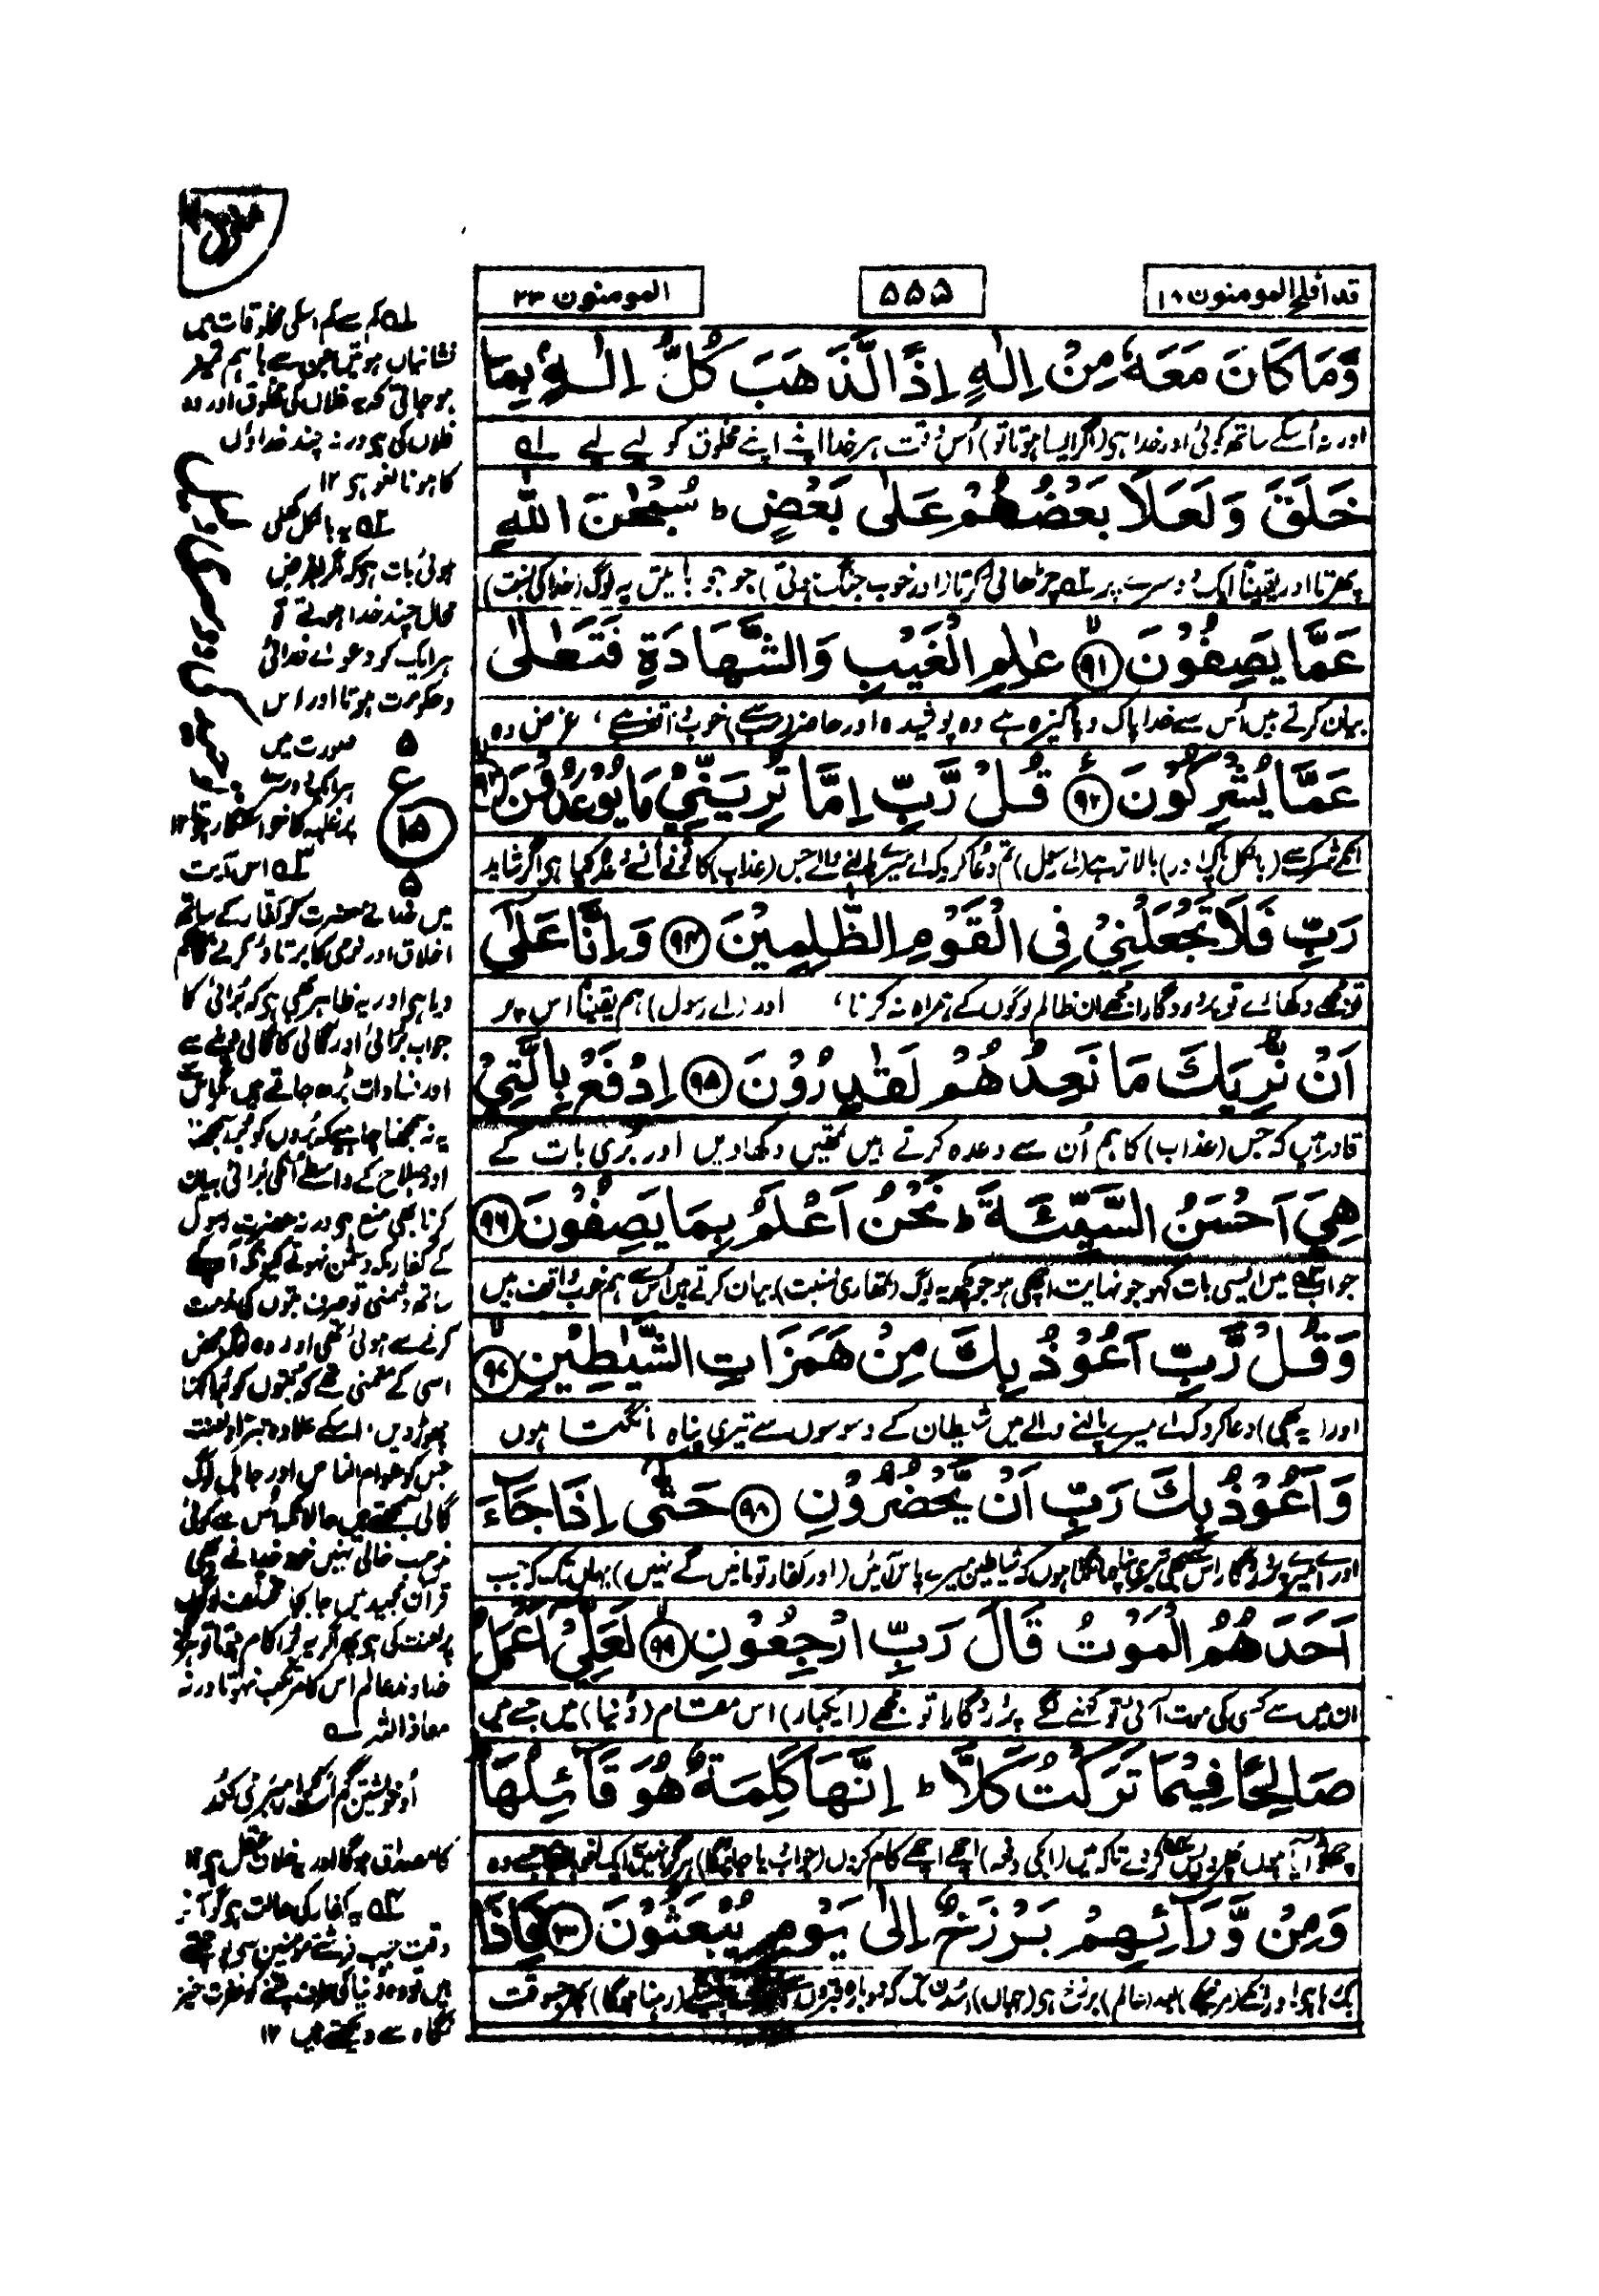 قد افلح المومنون ۱۸
۵۵۵
المومنون ۲۳
وَّمَا كَانَ مَعَهٗ مِنْ اِلٰهٍ اِذًا لَّذَهَبَ كُلُّ اِلٰهٍۭ بِمَا
اور نہ اُسکے ساتھ کوئی اور خدا ہی (اگر ایسا ہوتا تو) اُس وقت ہر خدا اپنے اپنے مخلوق کو لیے لیے ۱؎
خَلَقَ وَلَعَلَا بَعْضُهُمْ عَلٰى بَعْضٍ ؕ سُبْحٰنَ اللّٰهِ
پھرتا اور یقیناً ایک دوسرے پر ۲؎ چڑھائی کرتا (اور خوب جنگ ہوتی) جو جو باتیں یہ لوگ (خدا کی نسبت)
عَمَّا يَصِفُوْنَ ﴿۹۱﴾ عٰلِمِ الْغَيْبِ وَالشَّهَادَةِ فَتَعٰلٰى
بیان کرتے ہیں اُس سے خدا پاک و پاکیزہ ہے وہ پوشیدہ اور حاضر (سب سے) خوب واقف ہے، غرض وہ
عَمَّا يُشْرِكُوْنَ ﴿۹۲﴾ قُلْ رَّبِّ اِمَّا تُرِيَنِّيْ مَا يُوْعَدُوْنَ ﴿۹۳﴾
انکے شرک سے (بالکل پاک اور) بالاتر ہے (اے رسول) تم دعا کرو کہ اے میرے پالنے والے جس (عذاب) کا تونے اُنسے وعدہ کیا ہی اگر شاید
رَبِّ فَلَا تَجْعَلْنِيْ فِى الْقَوْمِ الظّٰلِمِيْنَ ﴿۹۴﴾ وَاِنَّا عَلٰٓى
تو مجھے دکھائے تو پروردگارا مجھے ان ظالم لوگوں کے ہمراہ نہ کرنا، اور (اے رسول) ہم یقیناً اس پر
اَنْ نُّرِيَكَ مَا نَعِدُهُمْ لَقٰدِرُوْنَ ﴿۹۵﴾ اِدْفَعْ بِالَّتِيْ
قادر ہیں کہ جس (عذاب) کا ہم اُن سے وعدہ کرتے ہیں تمھیں دکھا دیں اور بُری بات کے
هِيَ اَحْسَنُ السَّيِّئَةَ ؕ نَحْنُ اَعْلَمُ بِمَا يَصِفُوْنَ ﴿۹۶﴾
جواب ۳؎ میں ایسی بات کہو جو نہایت اچھی ہو جو کچھ یہ لوگ (تمھاری نسبت) بیان کرتے ہیں اُس سے ہم خوب واقف ہیں
وَقُلْ رَّبِّ اَعُوْذُ بِكَ مِنْ هَمَزَاتِ الشَّيٰطِيْنِ ﴿۹۷﴾
اور (یہ بھی) دعا کرو کہ اے میرے پالنے والے میں شیطان کے وسوسوں سے تیری پناہ مانگتا ہوں
وَاَعُوْذُ بِكَ رَبِّ اَنْ يَّحْضُرُوْنِ ﴿۹۸﴾ حَتّٰٓى اِذَا جَآءَ
اور اے میرے پروردگار اس سے بھی تیری پناہ مانگتا ہوں کہ شیاطین میرے پاس آئیں (اور کفار تو مانیں گے نہیں) یہاں تک کہ جب
اَحَدَهُمُ الْمَوْتُ قَالَ رَبِّ ارْجِعُوْنِ ﴿۹۹﴾ لَعَلِّيْٓ اَعْمَلُ
ان میں سے کسی کی موت آئی تو کہنے لگے پروردگارا تو مجھے (ایکبار) اس مقام (دُنیا) میں جسے میں
صَالِحًا فِيْمَا تَرَكْتُ كَلَّا ؕ اِنَّهَا كَلِمَةٌ هُوَ قَآئِلُهَا
چھوڑ آیا ہوں پھر واپس کردے تاکہ میں (ابکی دفعہ) اچھے اچھے کام کروں (جواب دیا جائیگا) ہرگز نہیں یہ ایک لغو جسے وہ
وَمِنْ وَّرَآئِهِمْ بَرْزَخٌ اِلٰى يَوْمِ يُبْعَثُوْنَ فَاِذَا
بک رہا ہی اور انکے (مرنیکے) بعد (عالم) برزخ ہی (جہاں) اُسدن تک کہ دوبارہ قبروں (رہنا ہوگا) پھر جسوقت
۱؎ کم سے کم اسکی مخلوقات میں
نشانیاں ہوتیں جن سے باہم تمیز
ہوجاتی کہ یہ فلاں کی مخلوق اور وہ
فلاں کی ہی ورنہ چند خداؤں
کا ہونا لغو ہی ۱۲
۲؎ یہ بالکل کھلی
ہوئی بات ہی کہ اگر بفرض
محال چند خدا ہوتے تو
ہر ایک کو دعوائے خدائی
و حکومت ہوتا اور اس
صورت میں
ہر ایک دوسرے
پر غلبہ کا خواستگار ہوتا ۱۲
۵
ع
۱۵
۵
۳؎ اس آیت
میں خدا نے حضرت کو کفار کے ساتھ
اخلاق اور نرمی کا برتاؤ کرنے کا حکم
دیا ہی اور یہ ظاہر بھی ہی کہ بُرائی کا
جواب بُرائی اور گالی کا گالی دینے سے
اور فسادات بڑھ جاتے ہیں مگر اس سے
یہ نہ سمجھنا چاہیے کہ بُروں کو بُرا سمجھنا
اور اصلاح کے واسطے انکی بُرائی بیان
کرنا بھی منع ہی ورنہ حضرت رسول
کے کفار مکہ دشمن نہوتے کیونکہ آپ کے
ساتھ دشمنی تو صرف بتوں کی مذمت
کرنے سے ہوئی تھی اور وہ لوگ محض
اسی کے متمنی تھے کہ بتوں کو بُرا کہنا
چھوڑ دیں، اسکے علاوہ تبرّا و لعنت
جس کو عوام الناس اور جاہل لوگ
گالی سمجھتے ہیں حالانکہ اُس سے کوئی
مذہب خالی نہیں خود خدا نے بھی
قرآن مجید میں جابجا مختلف لوگوں
پر لعنت کی ہی پھر اگر یہ بُرا کام ہوتا تو ہرگز
خداوند عالم اس کا مرتکب نہوتا ورنہ
معاذ اللہ
اُو خویشتن گم است کرا رہبری کند
کا مصداق ہوگا اور یہ خلاف عقل ہی ۱۲
۴؎ یہ کفار کی حالت ہی کہ آخر
وقت جب فرشتے مومنین سے پوچھتے
نگاہ سے دیکھتے ہیں ۱۲